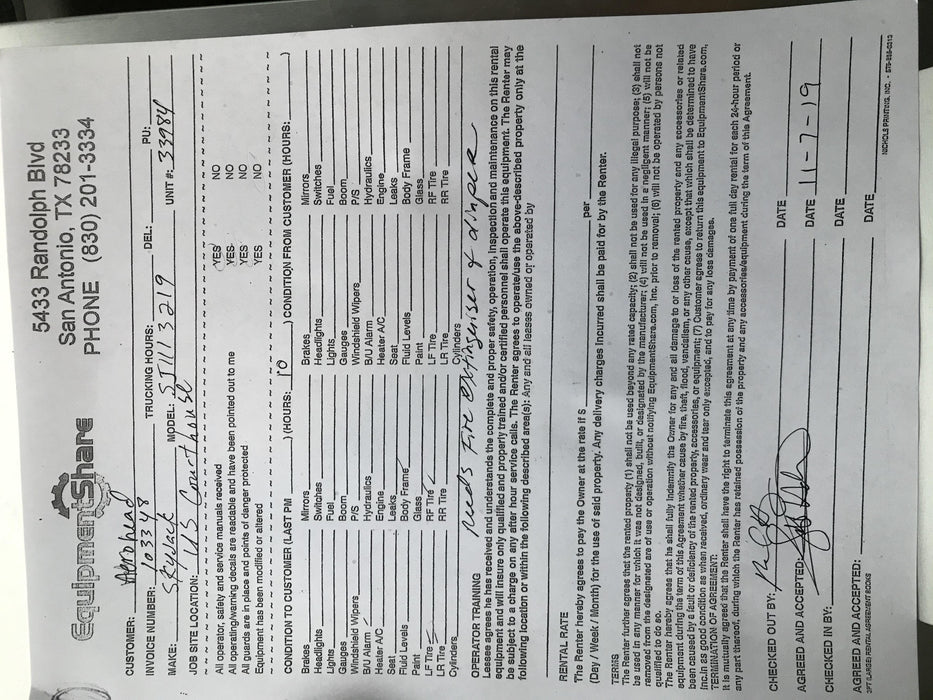 EquipmentShare
5433 Randolph Blvd
San Antonio, TX 78233
PHONE (830) 201-3334
CUSTOMER: Aerohead
INVOICE NUMBER: 103348 TRUCKING HOURS: DEL: PU:
MAKE: Skyjack MODEL: SJIII 3219 UNIT #: 33984
JOB SITE LOCATION: US Courthouse
All operator, safety and service manuals received YES NO
All operating/warning decals are readable and have been pointed out to me YES NO
All guards are in place and points of danger protected YES NO
Equipment has been modified or altered YES NO
CONDITION TO CUSTOMER (LAST PM ) (HOURS: 10 ) CONDITION FROM CUSTOMER (HOURS:
Brakes Mirrors Brakes Mirrors
Headlights Switches Headlights Switches
Lights Fuel Lights Fuel
Gauges Boom Gauges Boom
Windshield Wipers P/S Windshield Wipers P/S
B/U Alarm Hydraulics B/U Alarm Hydraulics
Heater A/C Engine Heater A/C Engine
Seat Leaks Seat Leaks
Fluid Levels Body Frame Fluid Levels Body Frame
Paint Glass Paint Glass
LF Tire RF Tire LF Tire RF Tire
LR Tire RR Tire LR Tire RR Tire
Cylinders Cylinders
OPERATOR TRAINING needs Fire extingeriser &
Lessee agrees he has received and understands the complete and proper safety operation, inspection and maintenance on this rental
equipment and will insure only qualified and properly trained and/or certified personnel shall operate this equipment. The Renter may
be subject to a charge on any after hour service calls. The Renter agrees to operate/use the above-described property only at the
following location or within the following described area(s): Any and all leases owned or operated by
RENTAL RATE
The Renter hereby agrees to pay the Owner at the rate if $ per
(Day / Week / Month) for the use of said property. Any delivery charges incurred shall be paid for by the Renter.
TERMS
The Renter further agrees that the rented property (1) shall not be used beyond any rated capacity; (2) shall not be used for any illegal purpose; (3) shall not
be used in any manner for which it was not designed, built, or designated by the manufacturer; (4) will not be used in a negligent manner; (5) will not be
removed from the designated are of use or operation without notifying EquipmentShare.com, Inc. prior to removal; (6) will not be operated by persons not
qualified to do so.
The Renter hereby agrees that he shall fully indemnify the Owner for any and all damage to or loss of the rented property and any accessories or related
equipment during the term of this Agreement whether cause by fire, theft, flood, vandalism, or any other cause, except that which shall be determined to have
been caused by a fault or deficiency of the rented property, accessories, or equipment; (7) Customer agrees to return this equipment to EquipmentShare.com,
Inc.in as good condition as when received, ordinary wear and tear only excepted, and to pay for any loss damages.
TERMINATION OF AGREEMENT:
It is mutually agreed that the Renter shall have the right to terminate this agreement at any time by payment of one full day rental for each 24-hour period or
any part thereof, during which the Renter has retained possession of the property and any accessories/equipment during the term of this Agreement.
CHECKED OUT BY: DATE
AGREED AND ACCEPTED: DATE 11-7-19
CHECKED IN BY: DATE
AGREED AND ACCEPTED: DATE
NICHOLS PRINTING, INC.